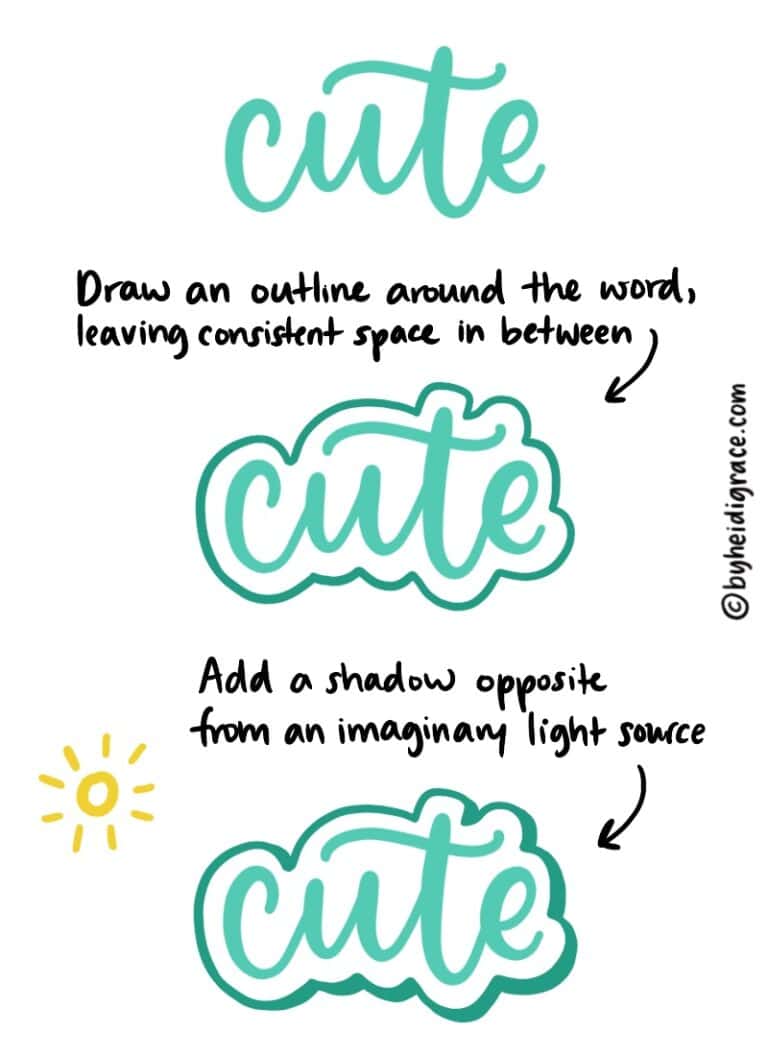 cute
Draw an outline around the word,
leaving consistent space in between
cute
©byheidigrace.com
Add a shadow opposite
from an imaginary light source
cute